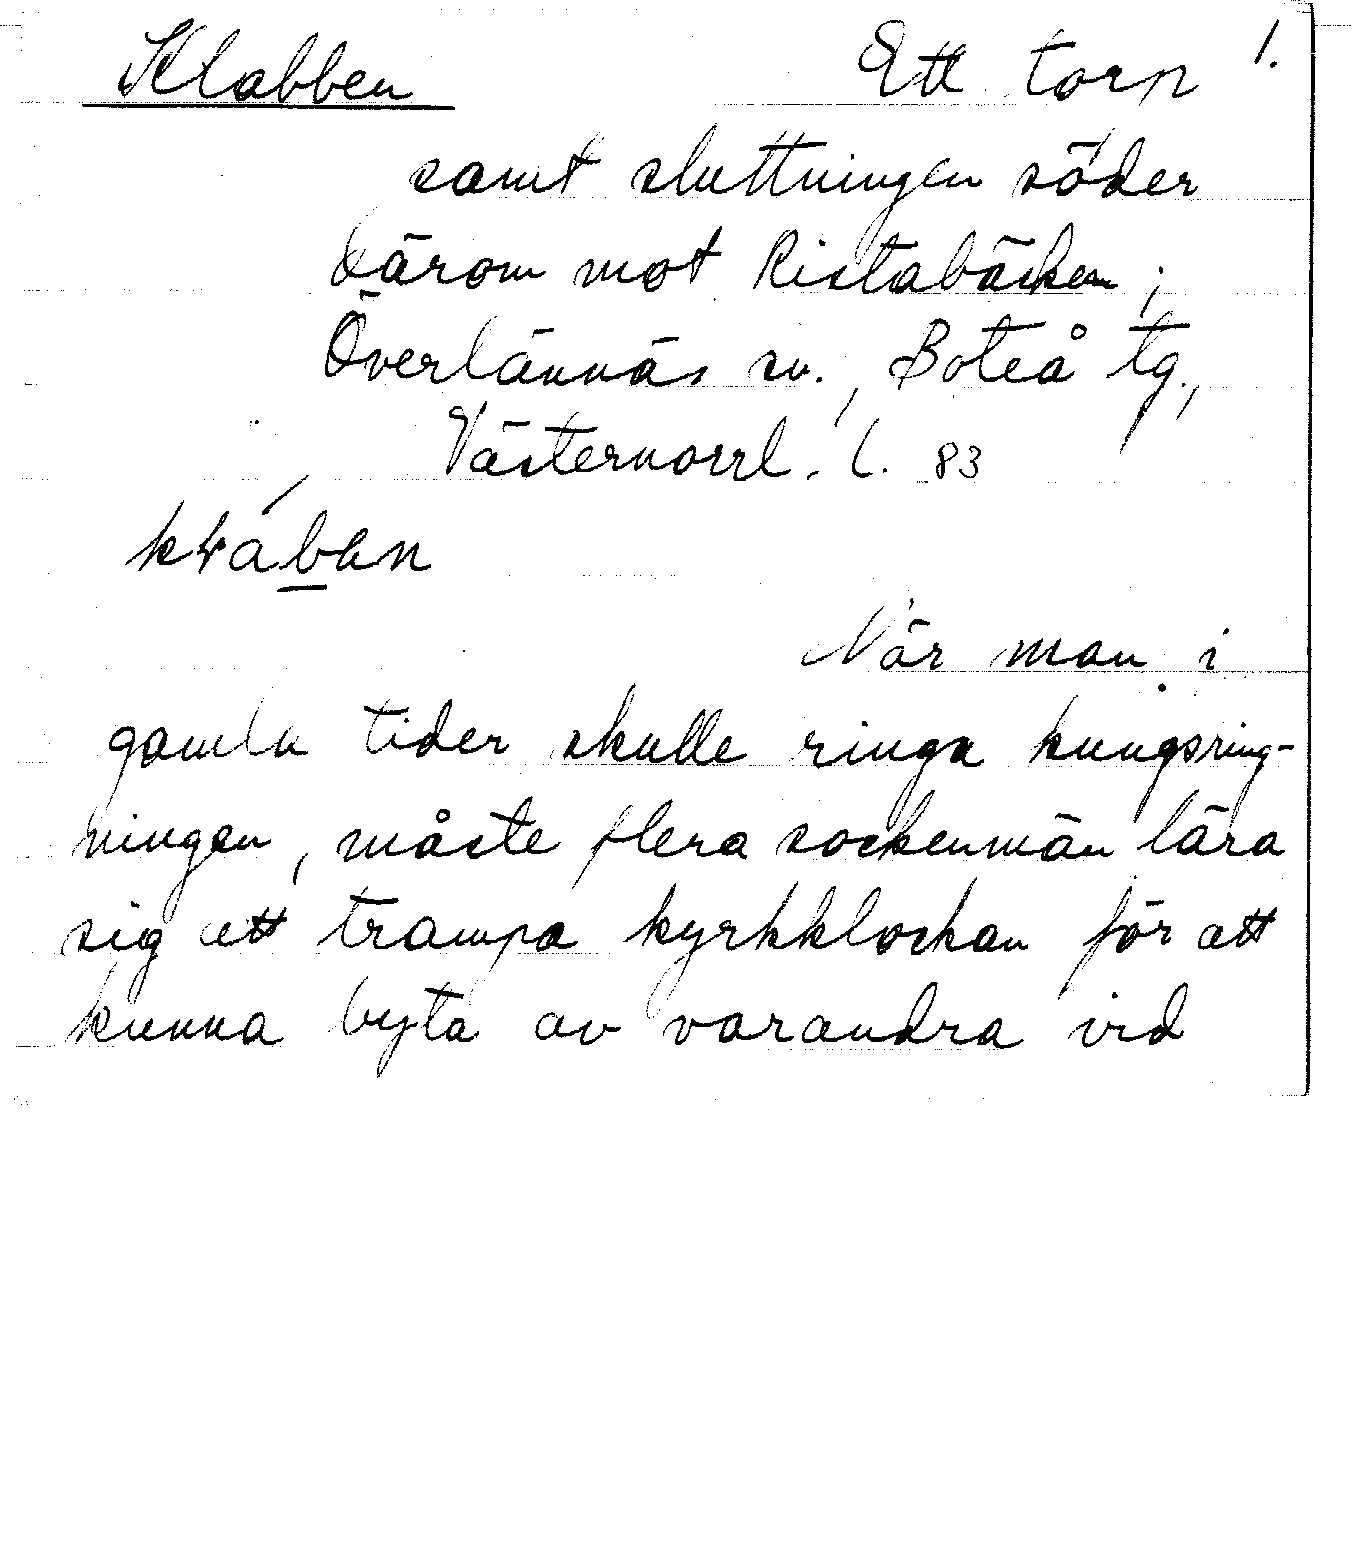 Klabben Ett torp 1.
samt sluttningen söder
därom mot Ristabäcken;
Överlännäs sn., Boteå tg.,
Västernorrl. l. 83
När man i
gamla tider skulle ringa kungsring-
ningen, måste flera sockenmän lära
sig att trampa kyrkklockan för att
kunna byta av varandra vid